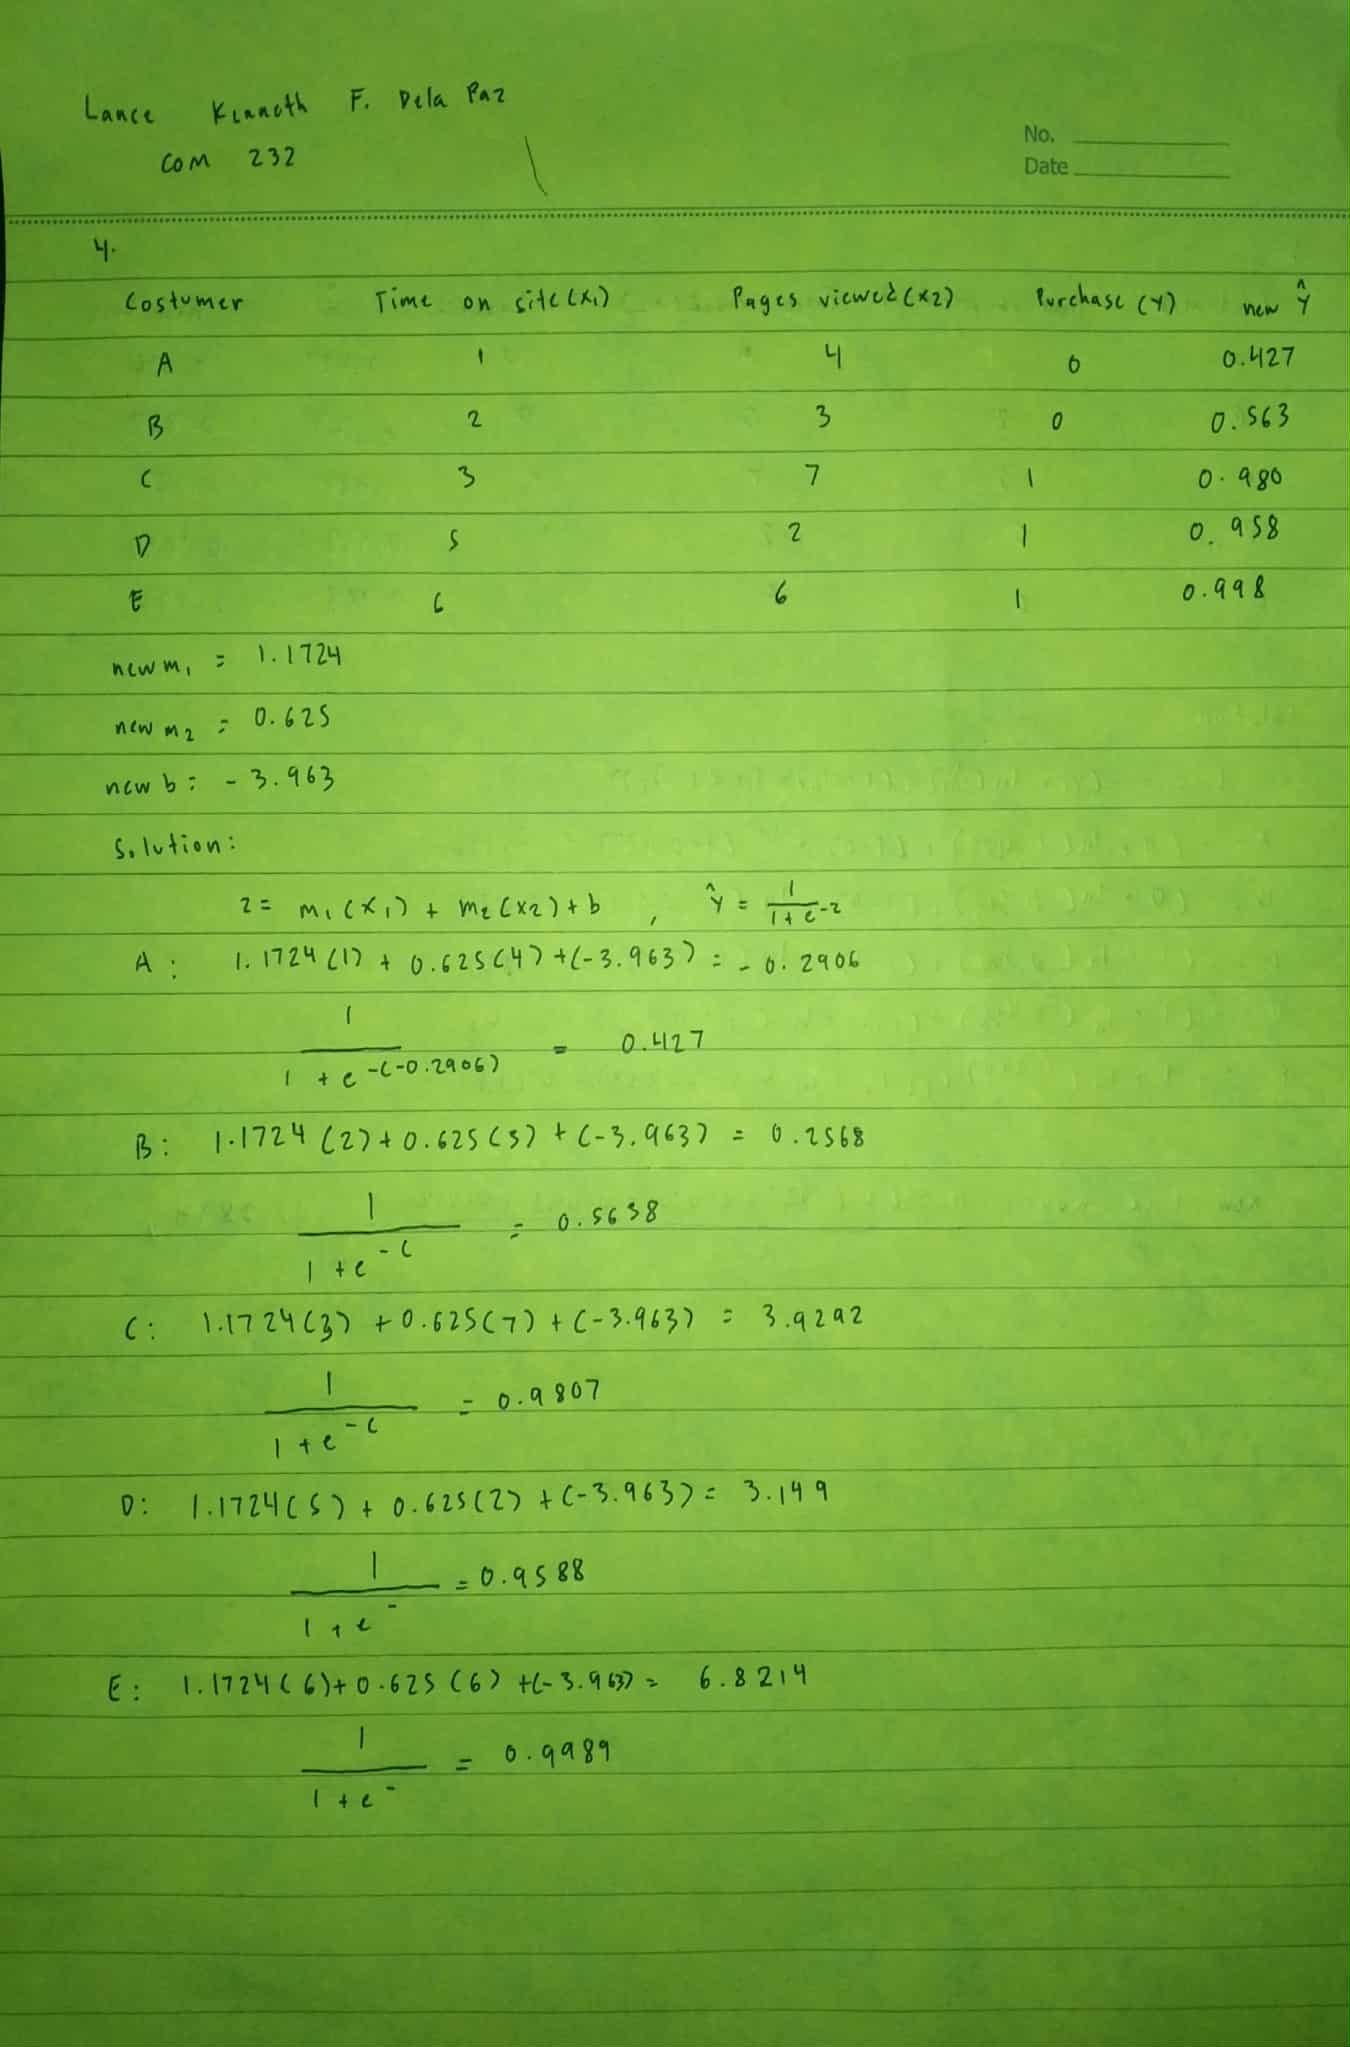 Lance Kenneth F. Dela Paz
COM 232
No.
Date
4.
Costumer Time on site (x₁) Pages viewed (x2) Purchase (Y) new Ŷ
A 1 4 0 0.427
B 2 3 0 0.563
C 3 7 1 0.980
D 5 2 1 0.958
E 6 6 1 0.998
new m₁ = 1.1724
new m₂ = 0.625
new b = -3.963
Solution:
z = m₁(x₁) + m₂(x₂) + b , Ŷ = 1/1+e^-z
A: 1.1724 (1) + 0.625(4) + (-3.963) = -0.2906
1/1+e^-(-0.2906) = 0.427
B: 1.1724 (2) + 0.625(3) + (-3.963) = 0.2568
1/1+e^-( = 0.5638
C: 1.1724(3) + 0.625(7) + (-3.963) = 3.9292
1/1+e^-( = 0.9807
D: 1.1724(5) + 0.625(2) + (-3.963) = 3.149
1/1+e^- = 0.9588
E: 1.1724(6) + 0.625(6) + (-3.963) = 6.8214
1/1+e^- = 0.9989